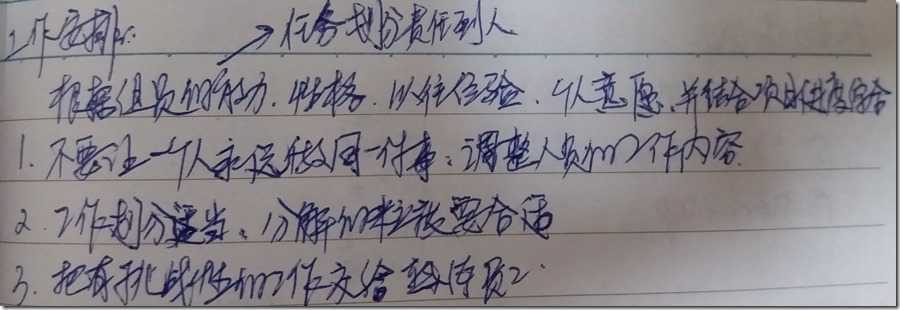 工作安排: → 任务划分责任到人
根据组员的能力、性格、以往经验、个人意愿、并结合项目进度综合
1. 不要让一个人永远做同一件事、调整人员的工作内容.
2. 工作划分适当、分解的粒度要合适
3. 把有挑战性的工作交给 员工.